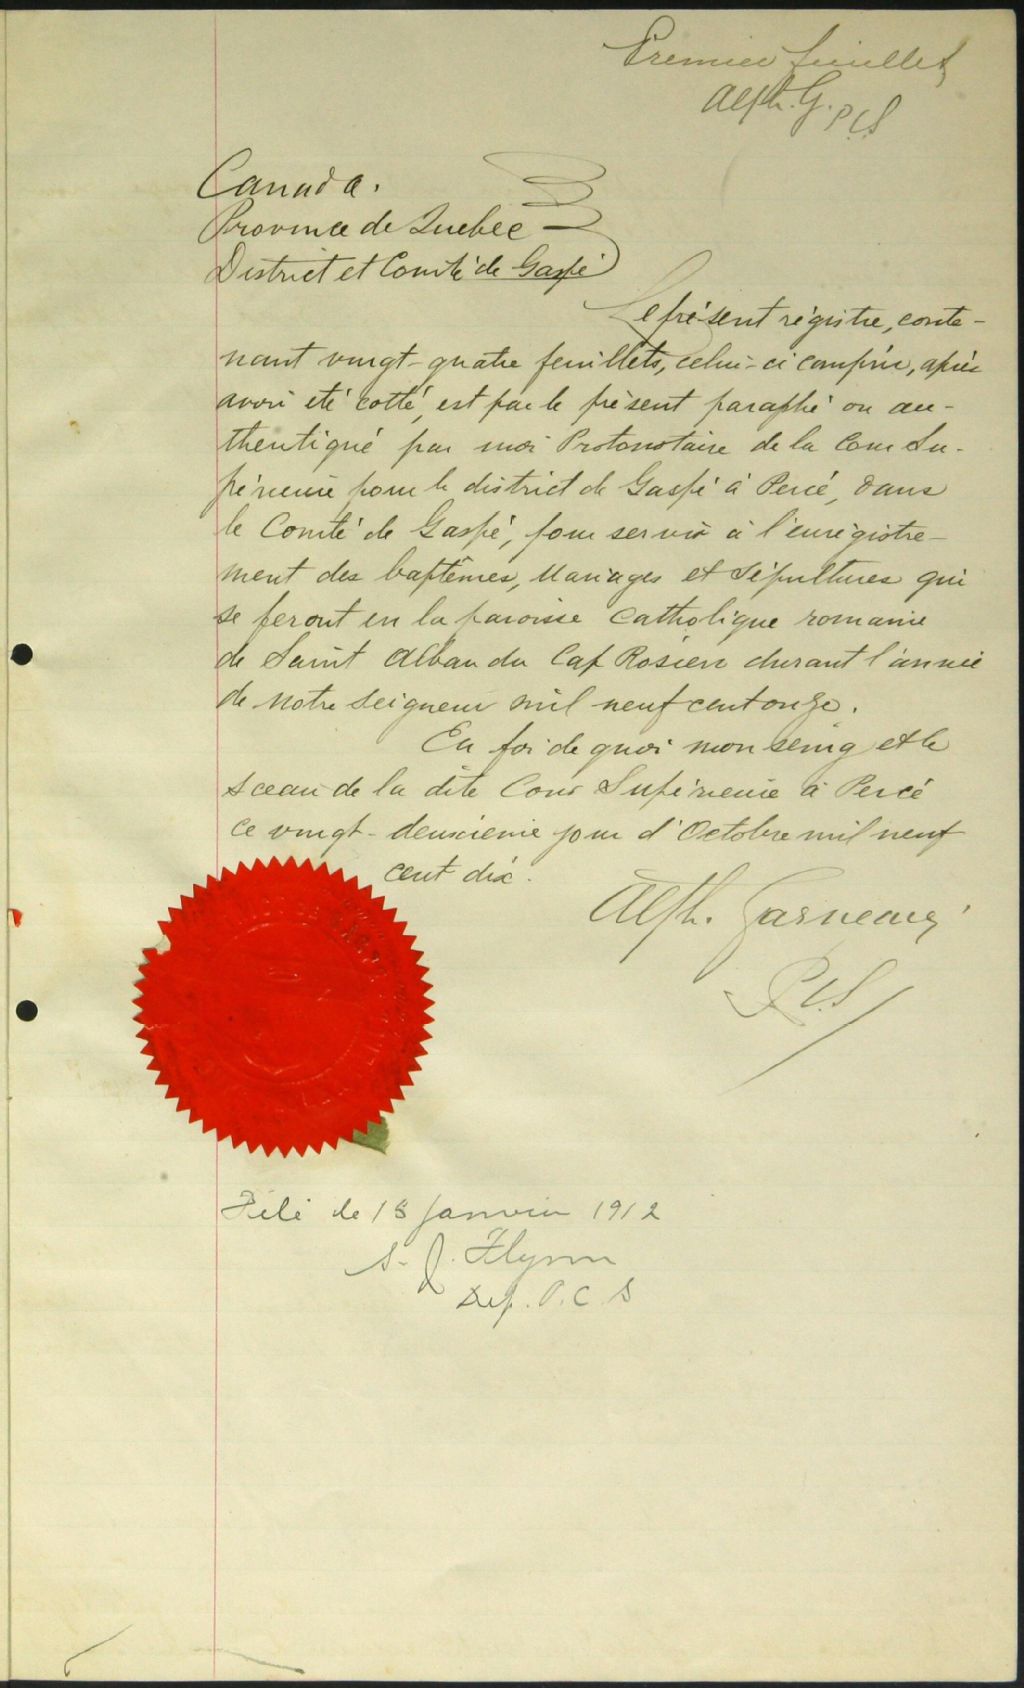 Premier feuillet
Alph. G. PCS
Canada.
Province de Quebec
District et Comté de Gaspé
Le présent régistre, conte-
nant vingt-quatre feuillets, celui-ci compris, après
avoir été cotté, est par le présent paraphé ou au-
thentiqué par moi Protonotaire de la Cour Su-
périeure pour le district de Gaspé à Percé, dans
le Comté de Gaspé, pour servir à l'enrégistre-
ment des baptêmes, Mariages et Sépultures qui
se feront en la paroisse Catholique romaine
de Saint Alban du Cap Rosier durant l'année
de notre Seigneur mil neuf cent onze.
En foi de quoi mon seing et le
sceau de la dite Cour Supérieure à Percé
ce vingt-deuxième jour d'Octobre mil neuf
cent dix.
Alph. Garneau
PCS
Filé le 18 Janvier 1912
S. J. Flynn
Dep. P. C. S